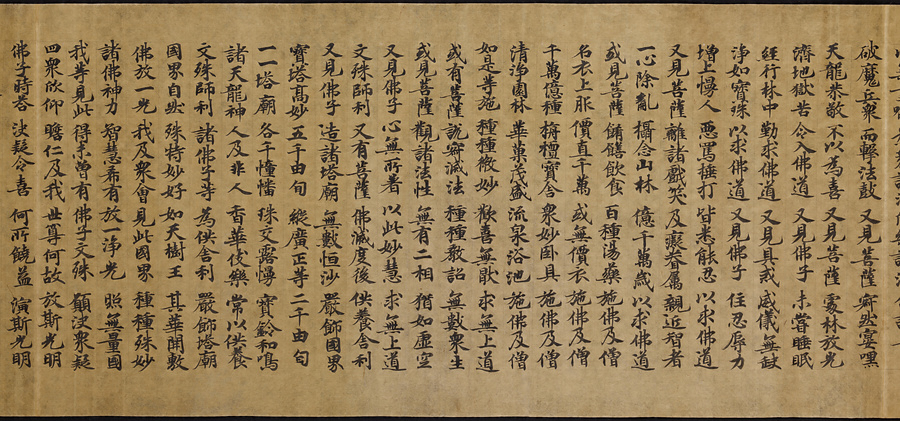 破魔兵衆 而擊法鼓 又見菩薩 寂然宴嘿
天龍恭敬 不以為喜 又見菩薩 處林放光
濟地獄苦 令入佛道 又見佛子 未嘗睡眠
經行林中 勤求佛道 又見具戒 威儀無缺
淨如寶珠 以求佛道 又見佛子 住忍辱力
增上慢人 惡罵捶打 皆悉能忍 以求佛道
又見菩薩 離諸戲笑 及癡眷屬 親近智者
一心除亂 攝念山林 億千萬歲 以求佛道
或見菩薩 餚饍飲食 百種湯藥 施佛及僧
名衣上服 價直千萬 或無價衣 施佛及僧
千萬億種 栴檀寶舍 衆妙卧具 施佛及僧
清淨園林 華菓茂盛 流泉浴池 施佛及僧
如是等施 種種微妙 歡喜無猒 求無上道
或有菩薩 說寂滅法 種種教詔 無數衆生
或見菩薩 觀諸法性 無有二相 猶如虛空
又見佛子 心無所著 以此妙慧 求無上道
文殊師利 又有菩薩 佛滅度後 供養舍利
又見佛子 造諸塔廟 無數恒沙 嚴飾國界
寶塔高妙 五千由旬 縱廣正等 二千由旬
一一塔廟 各千幢幡 珠交露幔 寶鈴和鳴
諸天龍神 人及非人 香華伎樂 常以供養
文殊師利 諸佛子等 為供舍利 嚴飾塔廟
國界自然 殊特妙好 如天樹王 其華開敷
佛放一光 我及衆會 見此國界 種種殊妙
諸佛神力 智慧希有 放一淨光 照無量國
我等見此 得未曾有 佛子文殊 願決衆疑
四衆欣仰 瞻仁及我 世尊何故 放斯光明
佛子時荅 決疑令喜 何所饒益 演斯光明